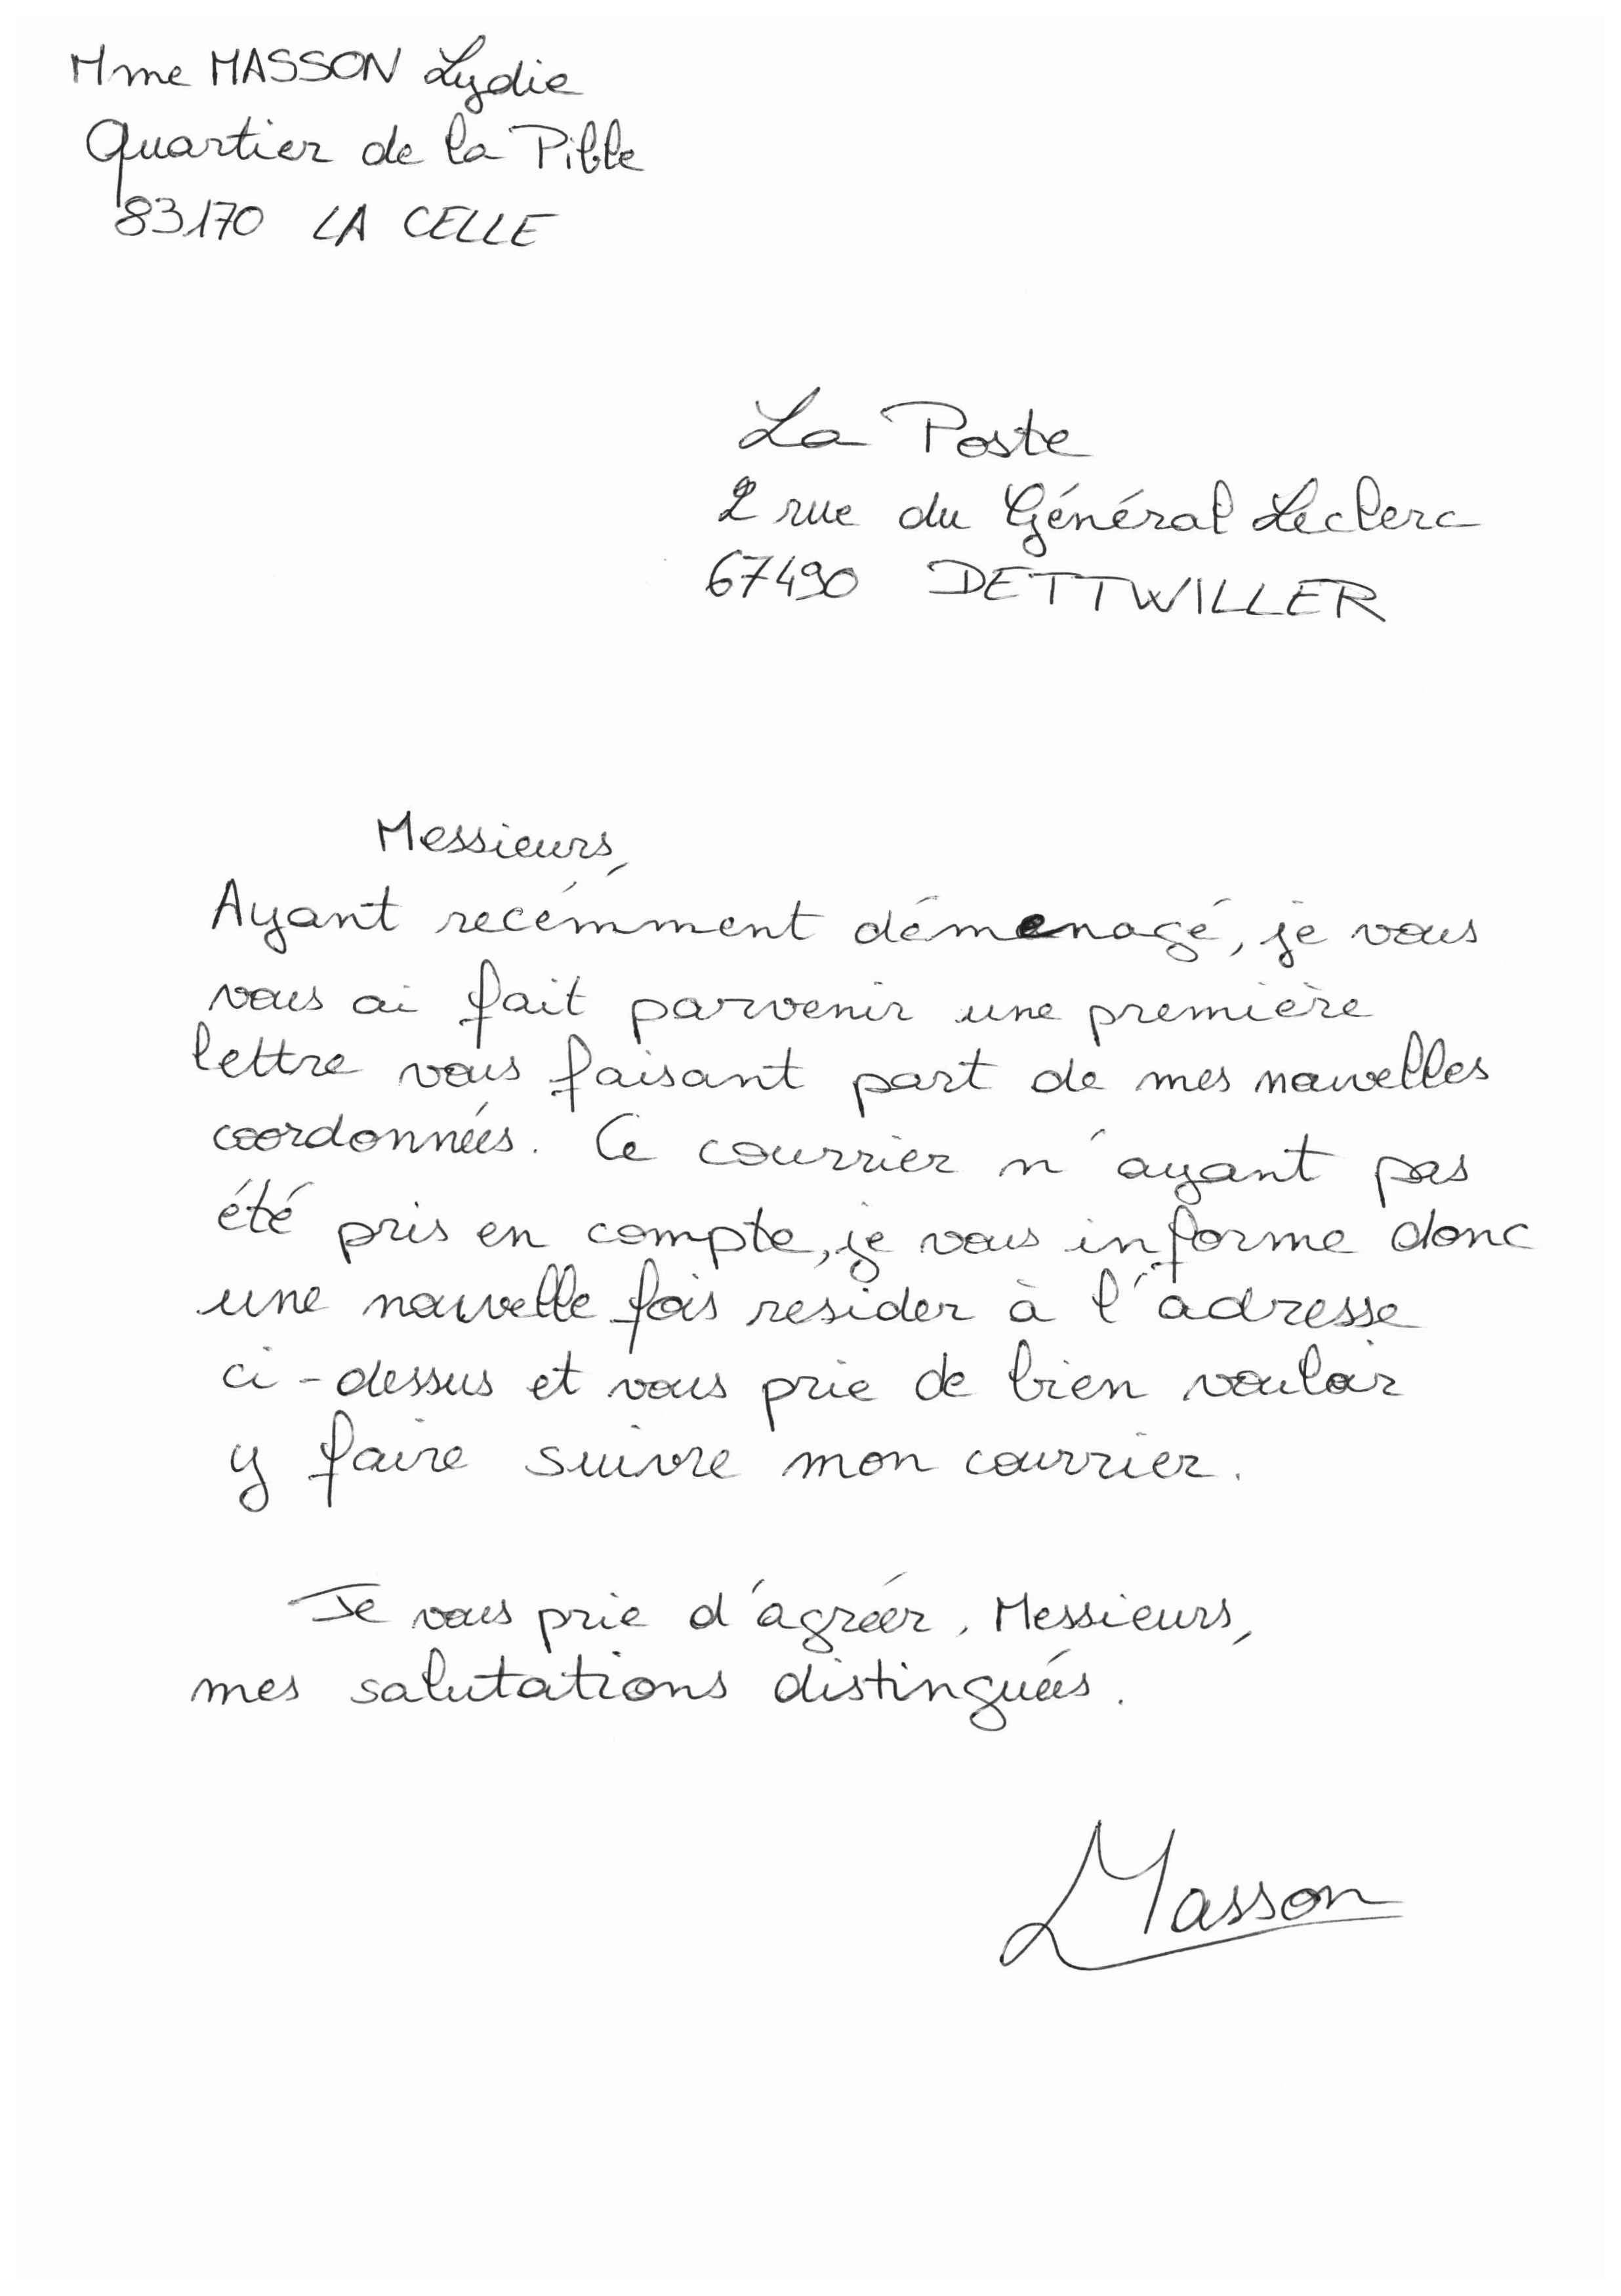 Mme MASSON Lydie
Quartier de la Pible
83170 LA CELLE
La Poste
2 rue du Général Leclerc
67490 DETTWILLER
Messieurs,
Ayant recémment démenagé, je vous
vous ai fait parvenir une première
lettre vous faisant part de mes nouvelles
coordonnées. Ce courrier n'ayant pas
été pris en compte, je vous informe donc
une nouvelle fois resider à l'adresse
ci-dessus et vous prie de bien vouloir
y faire suivre mon courrier.
Je vous prie d'agréer, Messieurs,
mes salutations distinguées.
Masson